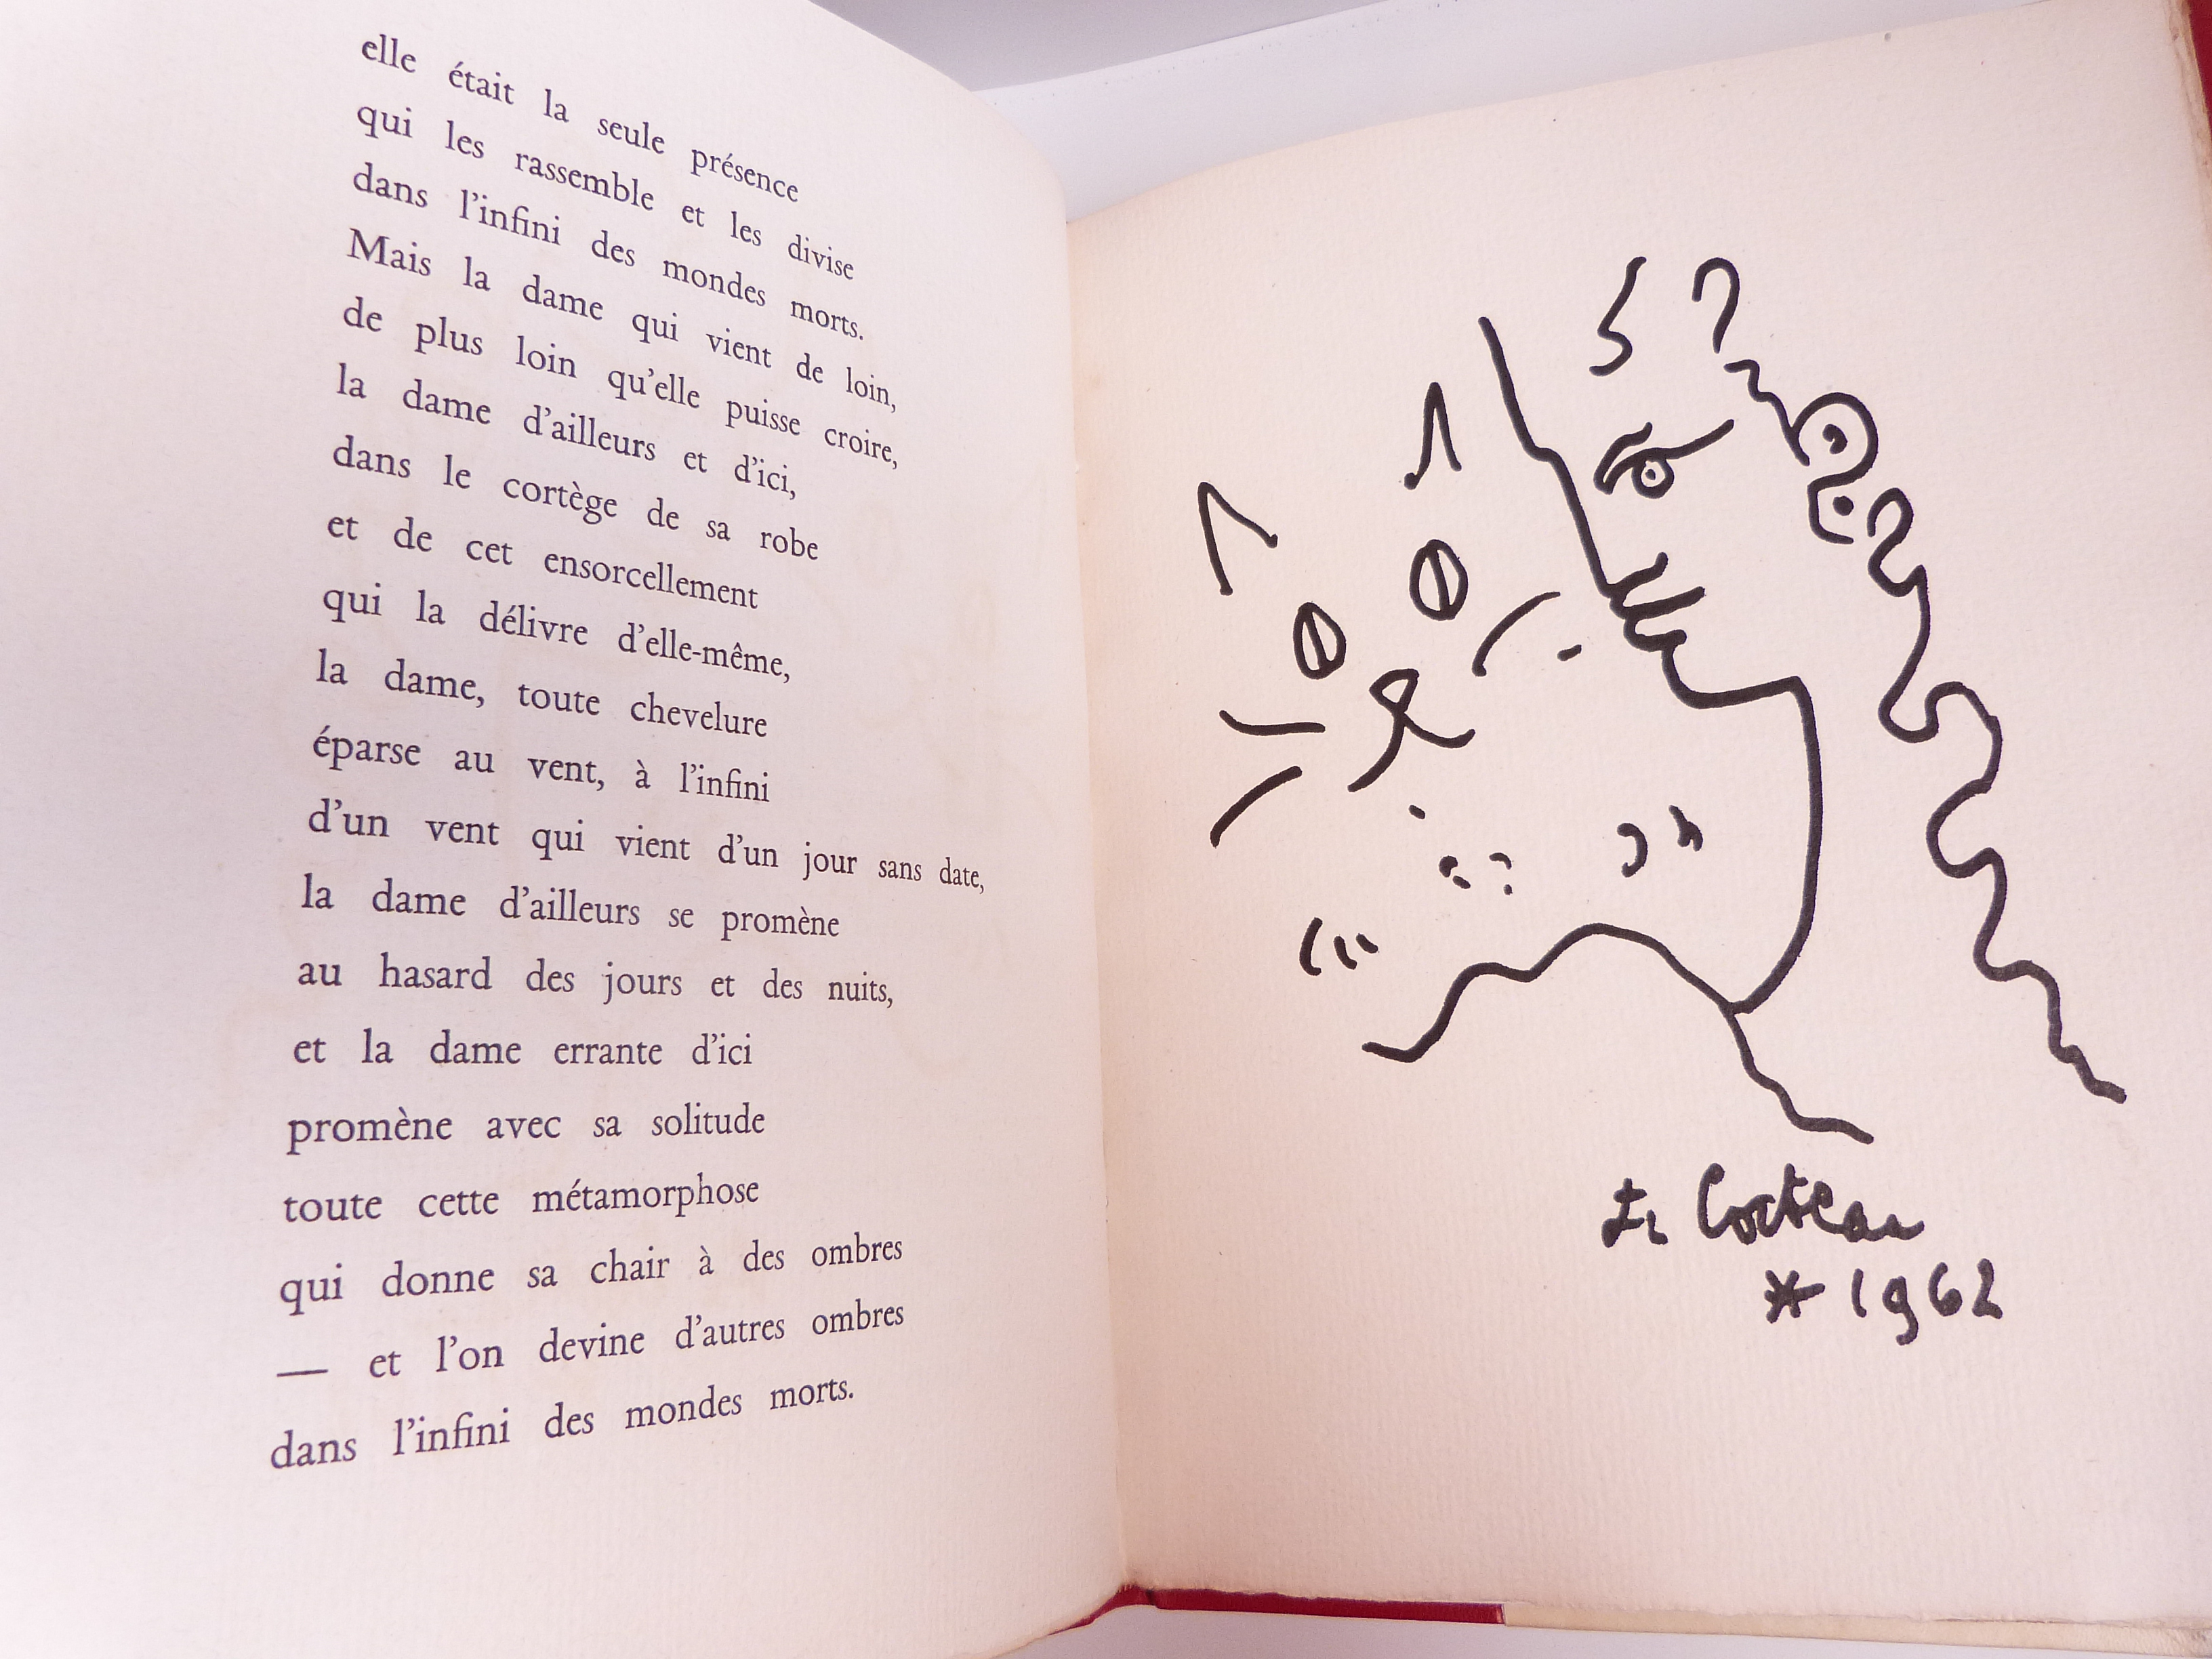 elle était la seule présence
qui les rassemble et les divise
dans l'infini des mondes morts.
Mais la dame qui vient de loin,
de plus loin qu'elle puisse croire,
la dame d'ailleurs et d'ici,
dans le cortège de sa robe
et de cet ensorcellement
qui la délivre d'elle-même,
la dame, toute chevelure
éparse au vent, à l'infini
d'un vent qui vient d'un jour sans date,
la dame d'ailleurs se promène
au hasard des jours et des nuits,
et la dame errante d'ici
promène avec sa solitude
toute cette métamorphose
qui donne sa chair à des ombres
— et l'on devine d'autres ombres
dans l'infini des mondes morts.
Cocteau
* 1962